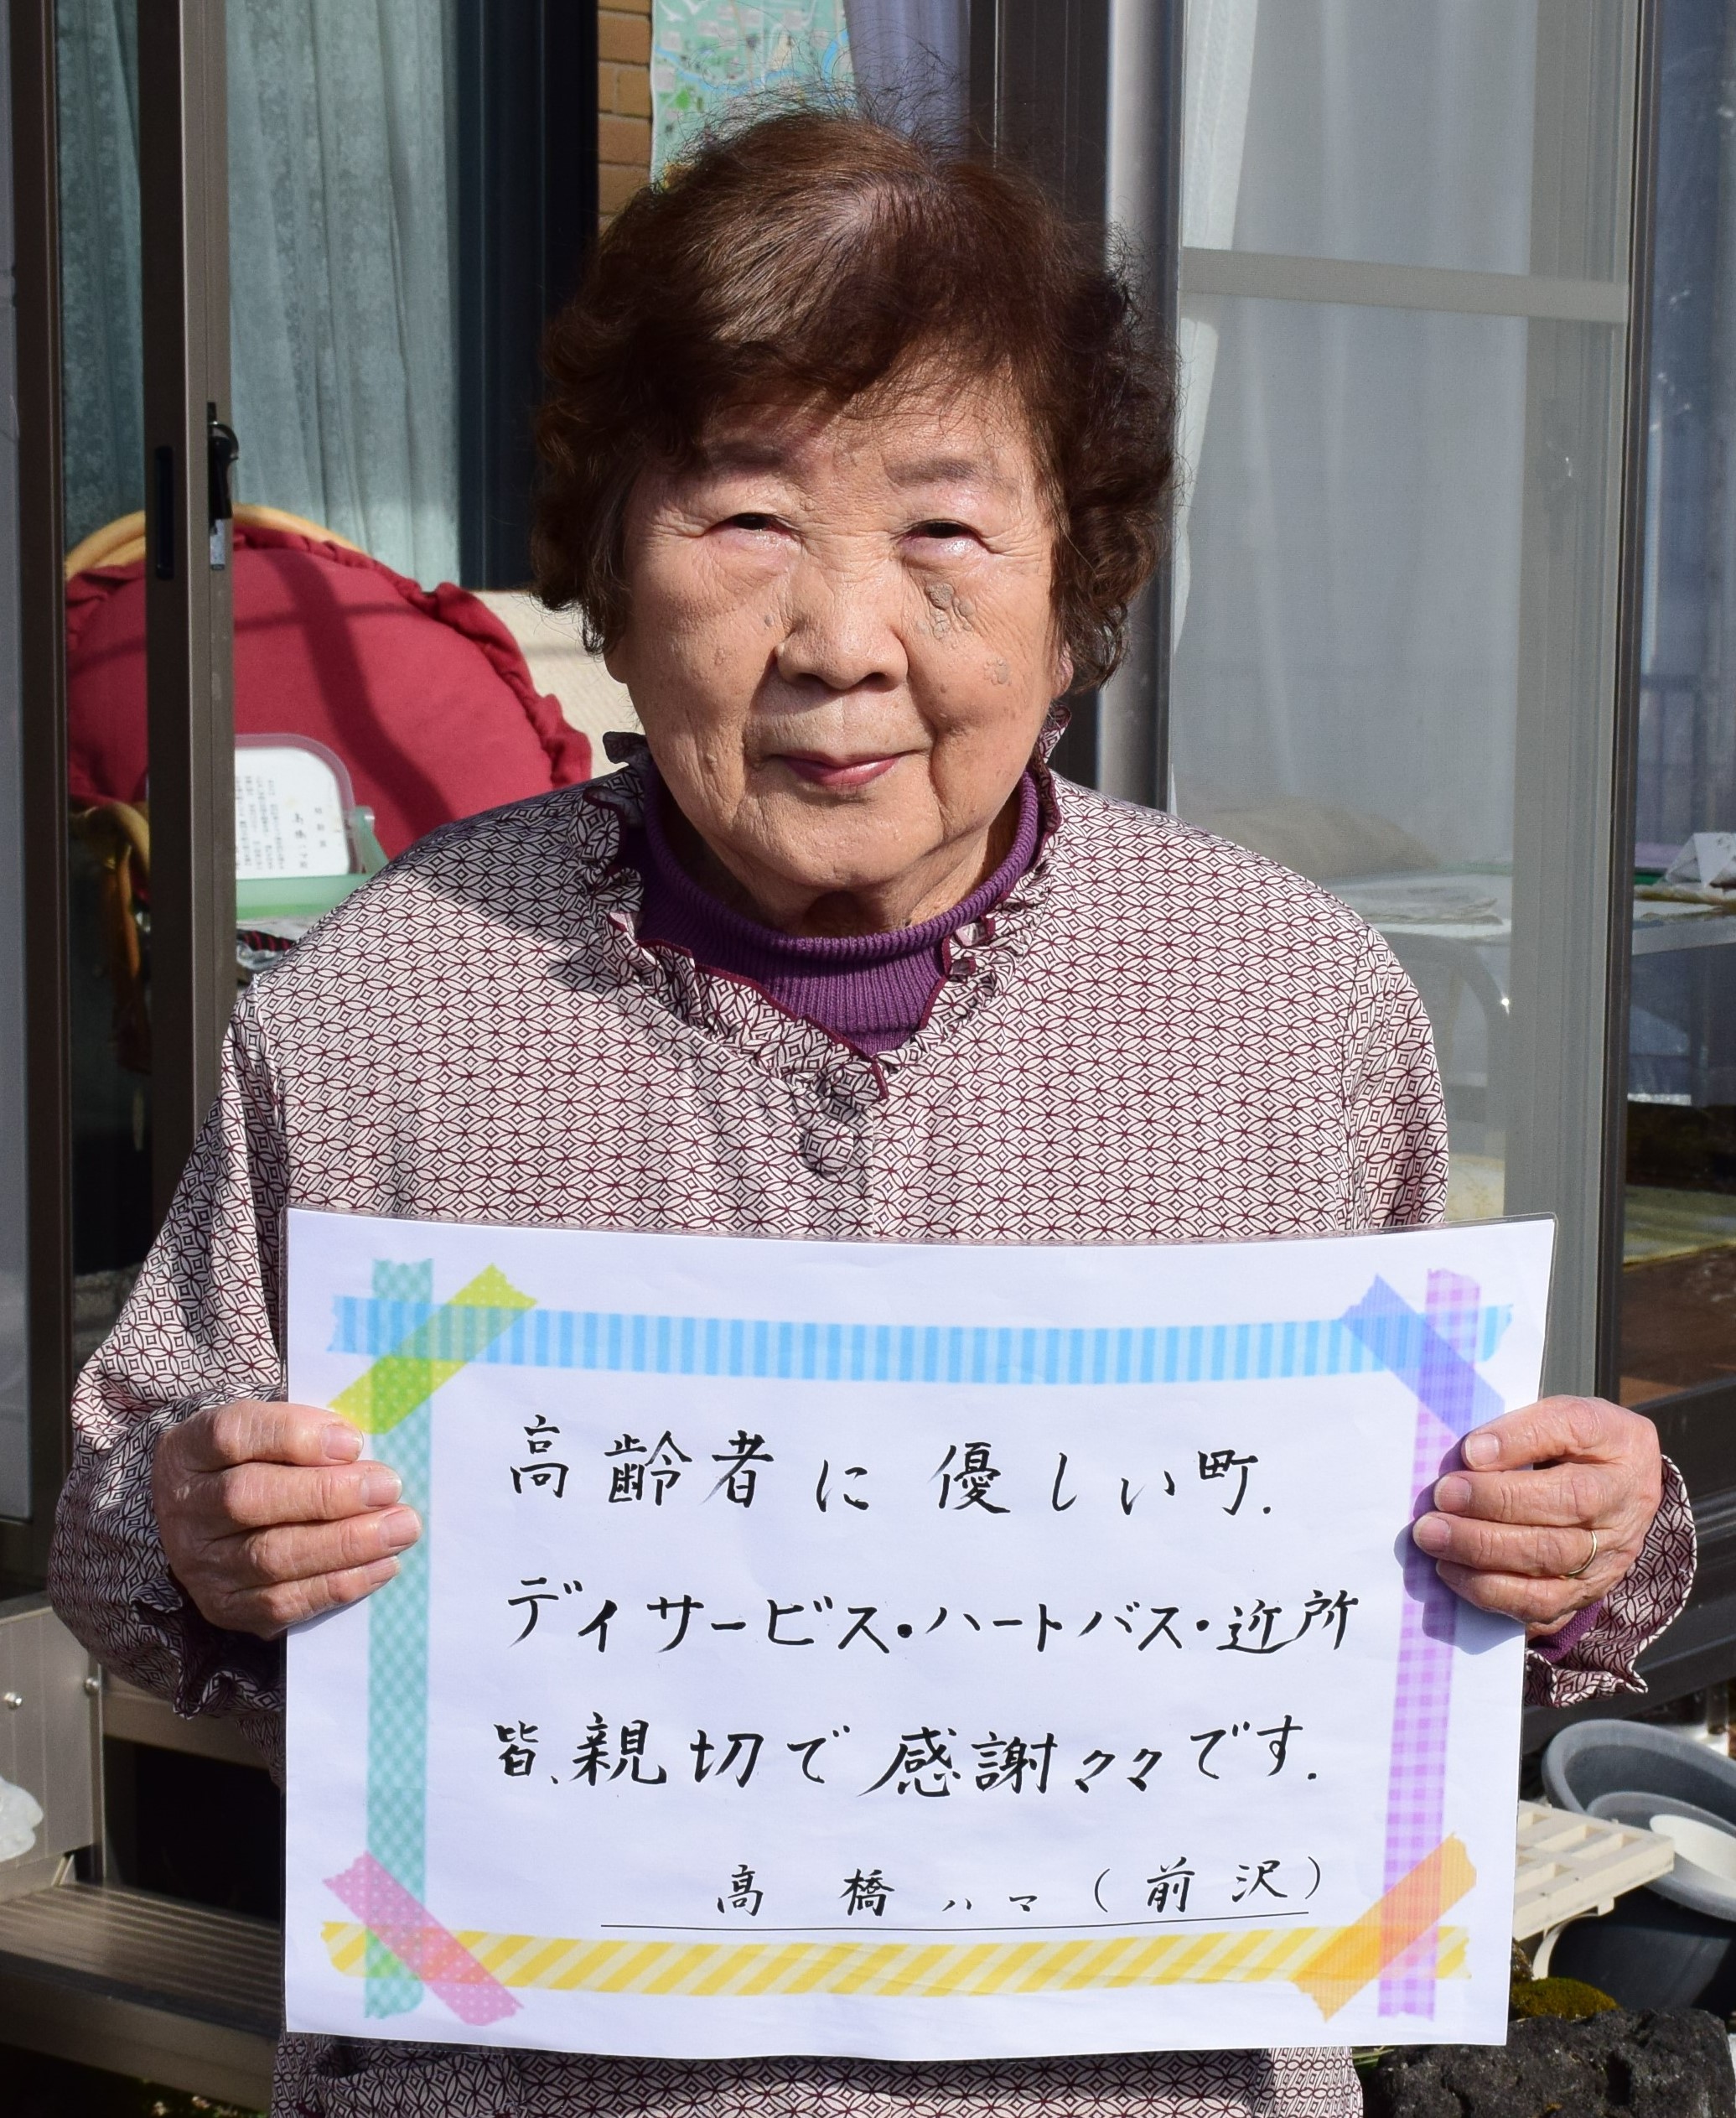 高齢者に優しい町.
デイサービス・ハートバス・近所
皆、親切で感謝々々です.
高橋ハマ(前沢)